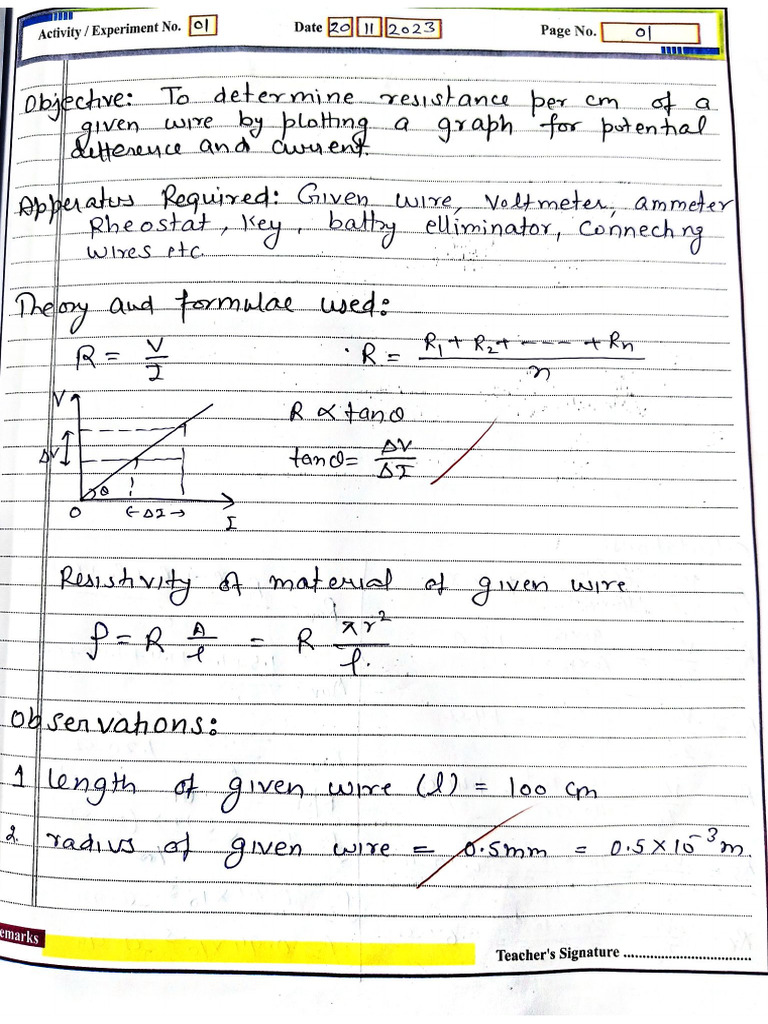 Activity / Experiment No. 01 Date 20 11 2023 Page No. 01
Objective: To determine resistance per cm of a
given wire by plotting a graph for potential
difference and current.
Apperatus Required: Given wire, Voltmeter, ammeter
Rheostat, Key, battry elliminator, Connecting
wires etc
Theory and formulae used:
R = V/I · R = R1 + R2 + ---- + Rn / n
V
ΔV
θ
O ← ΔI → I
R ∝ tanθ
tanθ = ΔV/ΔI
Resistivity of material of given wire
ρ = R A/l = R πr²/l.
Observations:
1 length of given wire (l) = 100 cm
2. radius of given wire = 0.5mm = 0.5×10⁻³m.
emarks
Teacher's Signature ..................................